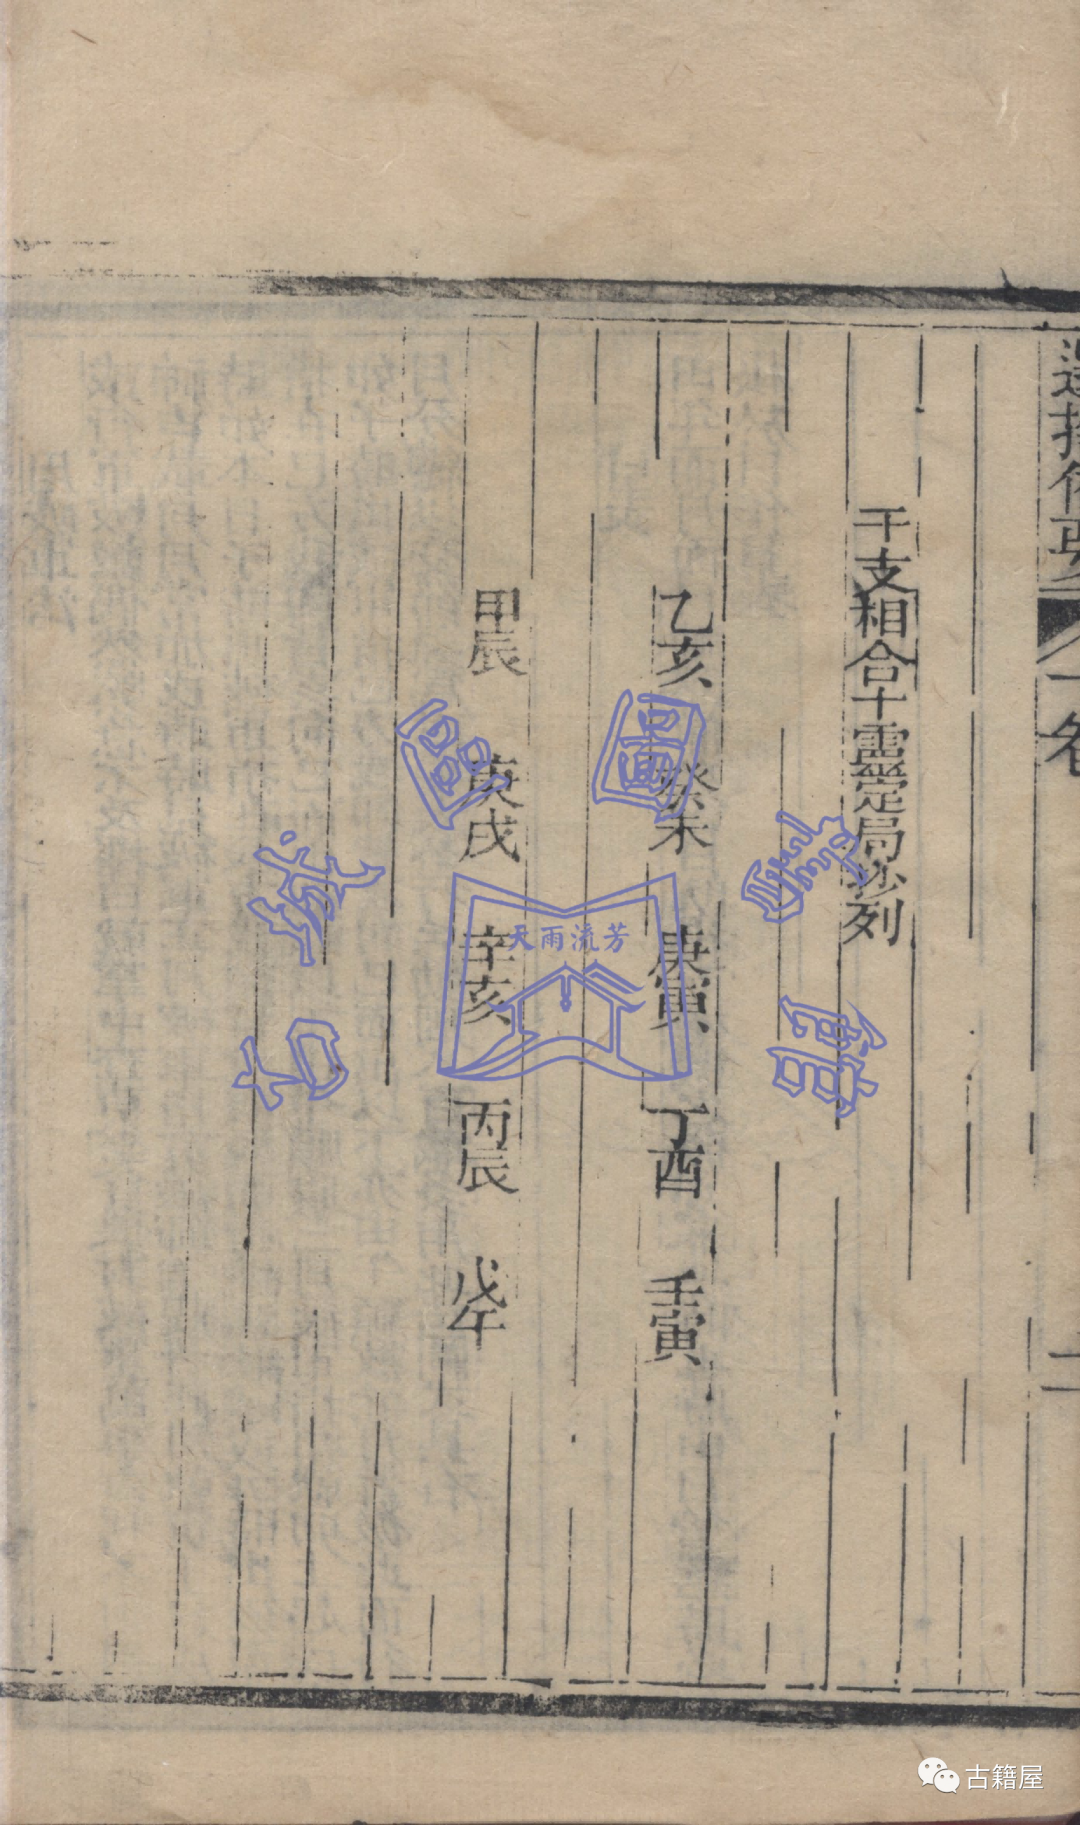 一卷
干支相合十靈㝎局抄列
乙亥 癸未 庚寅 丁酉 壬寅
甲辰 庚戌 辛亥 丙辰 戊午
古城區圖書館
天雨流芳
古籍屋